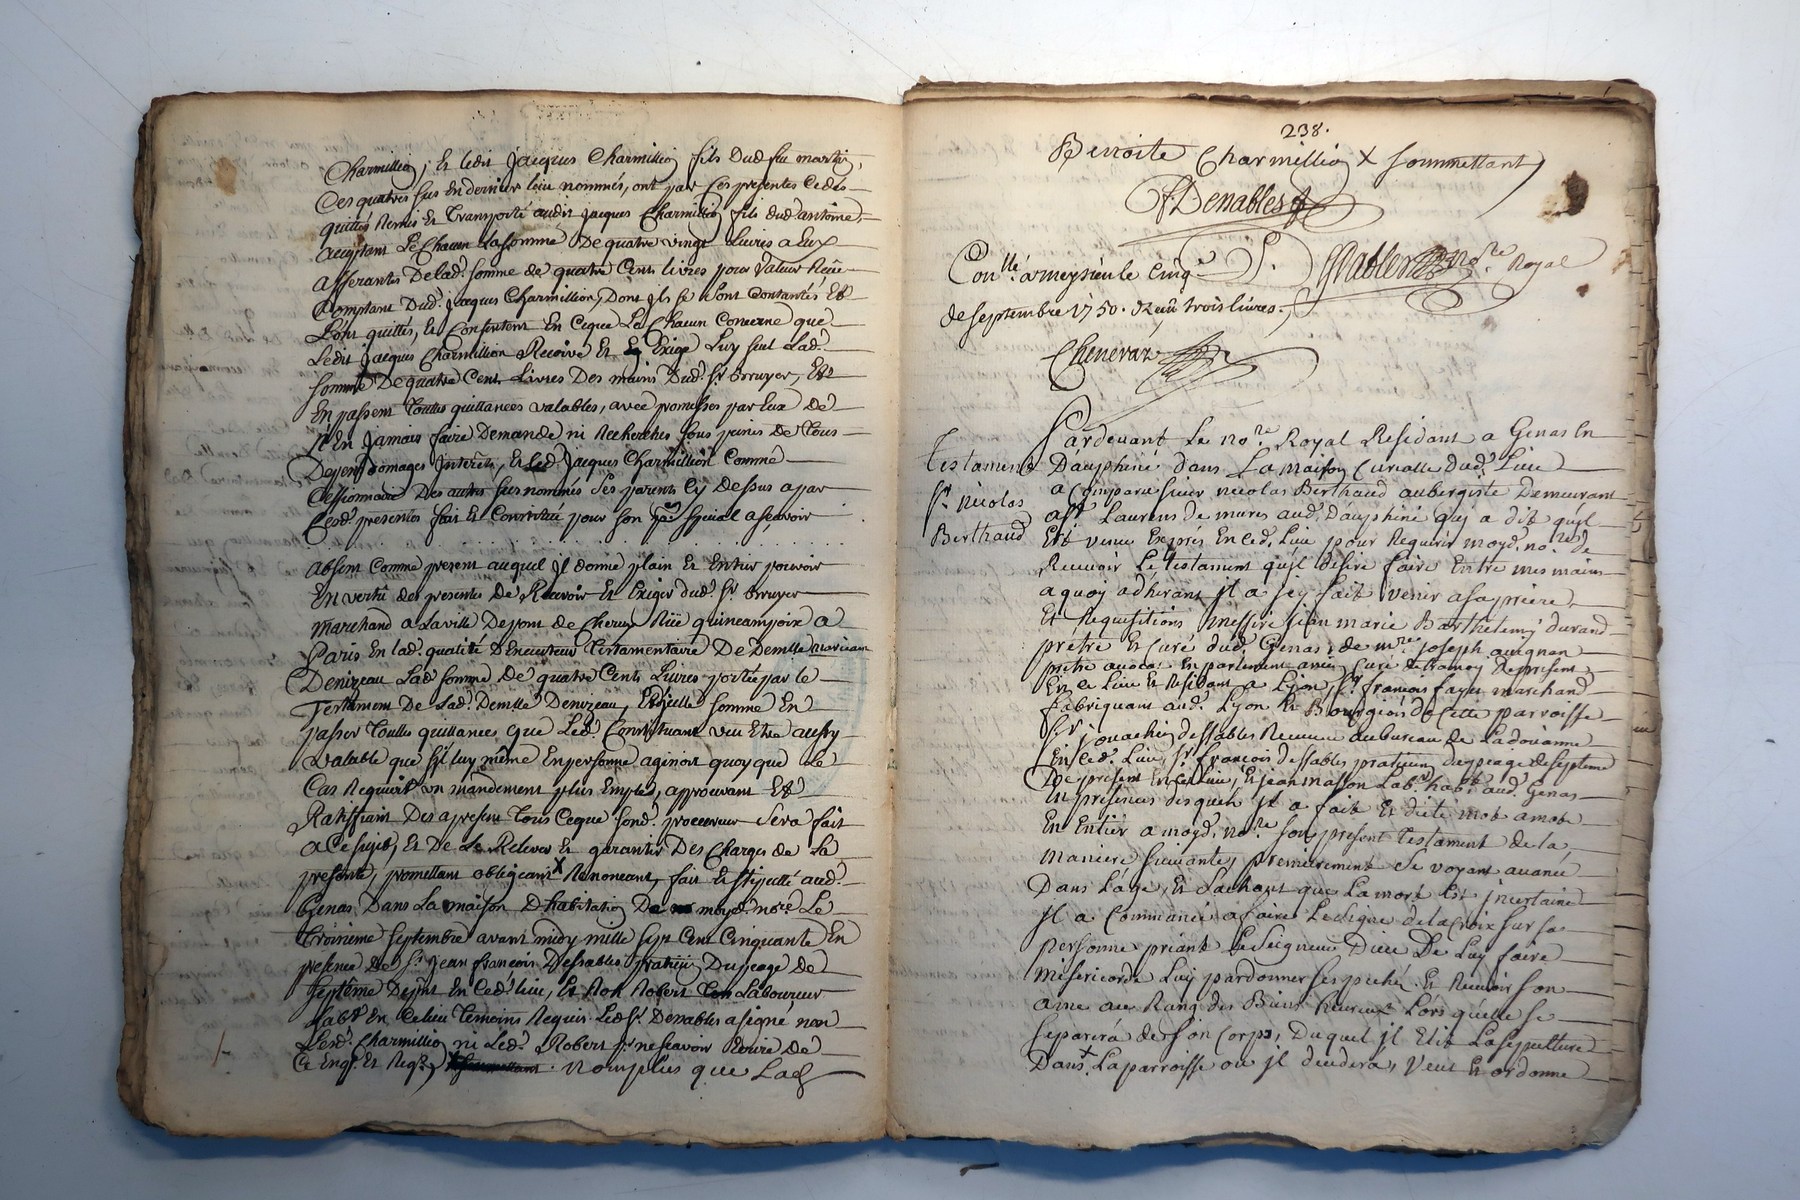 Charmillion, Et ledit Jacques Charmillion fils Dud. feu martin,
Ces quatres sus En dernier lieu nommés, ont par Ces presentes Cedés
quittés Remis Et Transporté audit Jacques Charmillion fils dud. antoine
acceptant Le Chacun La somme De quatre vingt Livres a Eux
afferantes De lad. somme de quatre Cents livres pour valeur Reüe
Comptant Dud. Jacques Charmillion, Dont Ils se sont Contantés Et
L'ont quittés, Et Consentent En Ceque Le Chacun Concerne que
Ledit Jacques Charmillion Recoive Et Exige Luy seul Lad.
somme De quatre Cent Livres Des mains Dud. Sr. Bruyer, Et
En passent Touttes quittances valables, avec promesses par Eux De
N'En Jamais faire Demande ni Recherches sous peines De Tous
Depens Domages Interets, Et Led. Jacques Charmillion Comme
Cessionnaire Des autres sus nommés ses parents Cy Dessus a par
Cesd. presentes fait Et Constitué pour son special ascavoir
absent Comme present auquel Il donne plain Et Entier pouvoir
En vertu des presentes De Recevoir Et Exiger dud. Sr. Bruyer
marchand a La ville De pont de Rüe quincampoix a
Paris En lad. qualité D'Executeur Testamentaire De Demlle
Denizeau Lad. somme De quatre Cents Livres portée par le
Testament De Lad. Demlle Denizeau, Et D'icelle somme En
passer Touttes quittances que Led. Constituant veu Etre aussy
valable que s'il luy même En personne agissoit quoy que Le
Cas Requit un mandement plus Emple, approuvant Et
Ratiffiant Des apresent Tous Ceque sond. procureur sera fait
a Ce sujet, Et De Le Relever Et garantir Des Charges de La
presente, promettant obligeant X Renonceant, fait Et stipullé aud.
Genas Dans La maison D'habitation De moyd. nore. Le
Troisieme septembre avant midy mille sept Cent Cinquante En
presence De Sr. Jean francois Dessables praticien Du peage De
septême Dept. En Ced. lieu, Et Robert Laboureur
habt. En Ce lieu Temoins Requis Led. Sr. Dessables a signé non
Lesd. Charmillion ni Led. Robert pr. ne scavoir Ecrire De
Ce Enqr. Et Reqr. non plus que Lad.
238.
Benoite Charmillion X soummettant
FDessables
JDessables nore. Royal
Conllé. a meysieu le Cinq
de septembre 1750. Receu trois livres.
Chenevaz
Testament
Sr. Nicolas
Berthaud
Pardevant Le nore. Royal Residant a Genas En
Dauphiné dans La maison Curialle dud. Lieu
a Comparu sieur nicolas Berthaud aubergiste Demeurant
a St. Laurens de mures aud. Dauphiné qui a dit qu'il
Est venu Expres En Ced. Lieu pour Requerir moyd. nore. de
Recevoir Le Testament qu'il desire faire Entre mes mains
a quoy adherant Il a fait venir a sa priere
Et Requisitions messire Jean marie Barthelemy durand
prêtre Et Curé dud. Genas, de mre. joseph avignon
prêtre avocat En parlement ancien Curé De present
En Ce Lieu Et Residant a Lyon, Sr. francois fayet marchand
fabriquant aud. Lyon Et Bourgeois de Cette parroisse
Sr. jouachin dessables Receveur au bureau de La doüanne
En Ced. Lieu, Sr. francois dessables praticien du peage de septeme
De present En Ce Lieu, Et jean masson Lab. habt. aud. Genas
En presences desquels Il a fait Et dicté mot a mot
En Entier a moyd. nore. son present Testament de la
maniere suivante, premierement se voyant avancé
Dans L'age, Et sachant que La mort Est incertaine
Il a Commancé a faire Le signe de la Croix sur sa
personne priant Le Seigneur Dieu De Luy faire
misericorde Luy pardonner ses pechés Et Recevoir son
ame au Rang des Bien heureux Lors qu'elle se
separera de son Corps, Duquel il Elit La sepulture
Dans X La parroisse ou il decedera, Veut Et ordonne